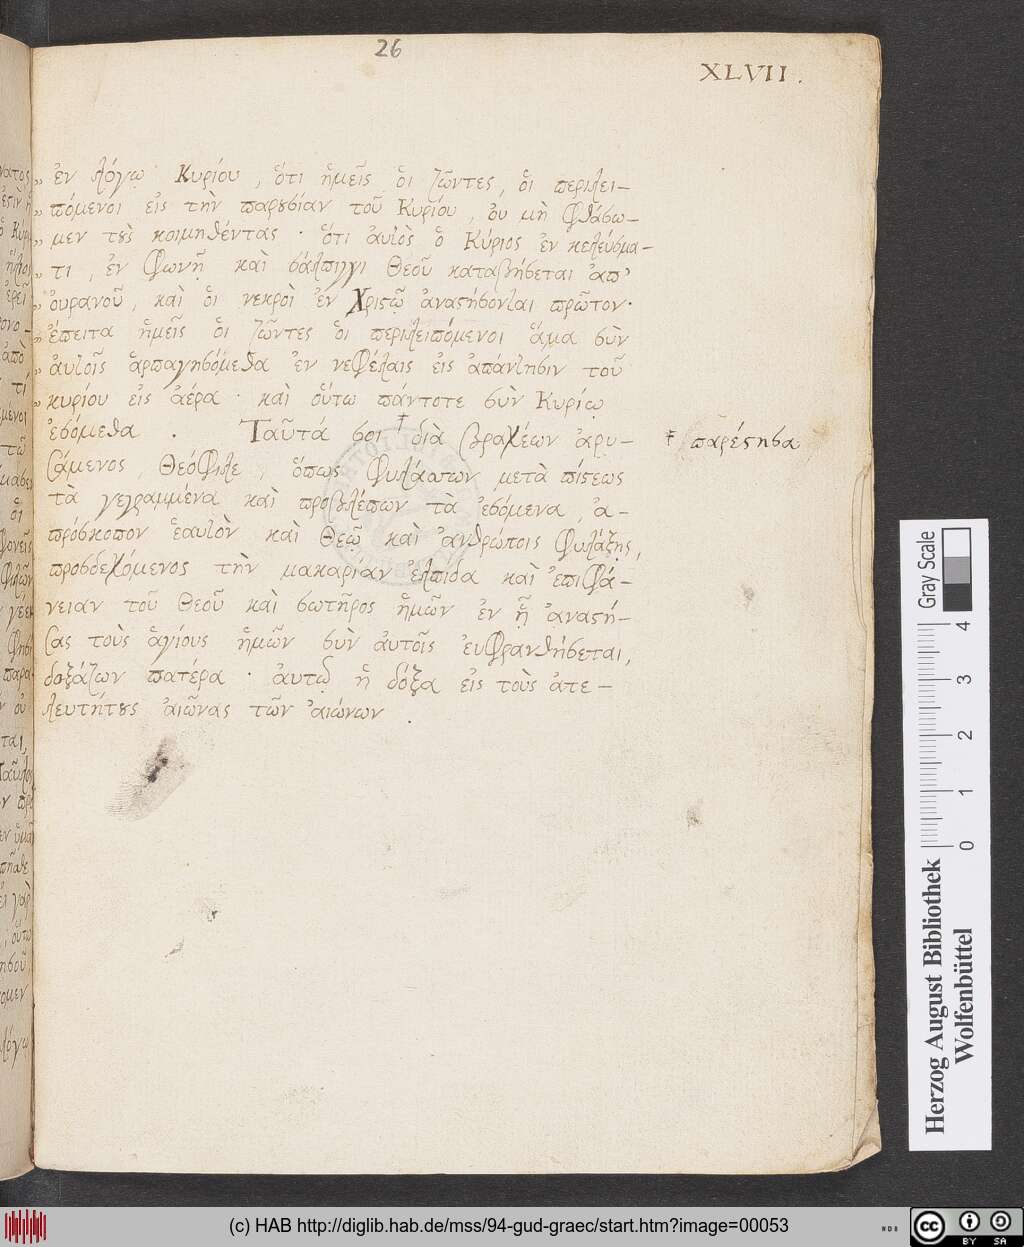 26
XLVII.
„ ἐν λόγῳ Κυρίου, ὅτι ἡμεῖς ὁι ζῶντες, ὁι περιλει-
„ πόμενοι εἰς τὴν παρουσίαν τοῦ Κυρίου, ὀυ μὴ φθάσω-
„ μεν τοὺς κοιμηθέντας · ὅτι ἀυτὸς ὁ Κύριος ἐν κελεύσμα-
„ τι, ἐν φωνῇ καὶ σάλπιγγι Θεοῦ καταβήσεται ἀπ'
„ ὀυρανοῦ, καὶ ὁι νεκροὶ ἐν Χριστῷ ἀναστήσονται πρῶτον·
„ ἔπειτα ἡμεῖς ὁι ζῶντες ὁι περιλειπόμενοι ἅμα σὺν
„ ἀυτοῖς ἁρπαγησόμεθα ἐν νεφέλαις εἰς ἀπάντησιν τοῦ
„ κυρίου εἰς ἀέρα · καὶ ὅυτω πάντοτε σὺν Κυρίῳ
ἐσόμεθα . Ταῦτά σοι ⸗ διὰ βραχέων ἀρυ-
⸗ παρέστησα
σάμενος, Θεόφιλε, ὅπως φυλάττων μετὰ πίστεως
τὰ γεγραμμένα καὶ προβλέπων τὰ ἐσόμενα, ἀ-
πρόσκοπον ἑαυτὸν καὶ Θεῷ καὶ ἀνθρώποις φυλάξῃς,
προσδεχόμενος τὴν μακαρίαν ἐλπίδα καὶ ἐπιφά-
νειαν τοῦ Θεοῦ καὶ σωτῆρος ἡμῶν ἐν ᾗ ἀναστή-
σας τοὺς ἁγίους ἡμῶν σὺν ἀυτοῖς ἐυφρανθήσεται,
δοξάζων πατέρα · ἀυτῷ ἡ δόξα εἰς τοὺς ἀτε-
λευτήτους ἀιῶνας τῶν ἀιώνων .
Gray Scale
0 1 2 3 4
Herzog August Bibliothek
Wolfenbüttel
(c) HAB http://diglib.hab.de/mss/94-gud-graec/start.htm?image=00053
WDB
cc BY SA